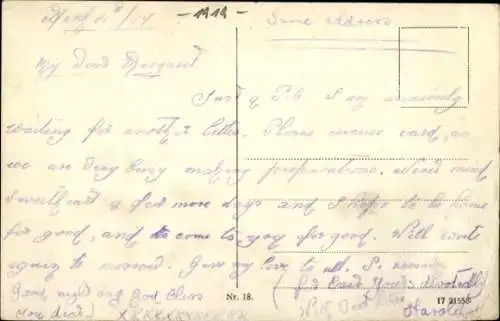 - 1919 -
Same address
My Dear Margaret
Just a P.C. I am anxiously
waiting for another letter. Please excuse card, as
we are very busy making preparations. Never mind
Sweetheart a few more days and I hope to be home
for good, and to come to you for good. Will write
again to morrow. Give my love to all. So
Good night and God bless (for Ever Yours devotedly
my dear.) With Best
XXXXXXXXXXX Harold
Nr. 18. 17 21558